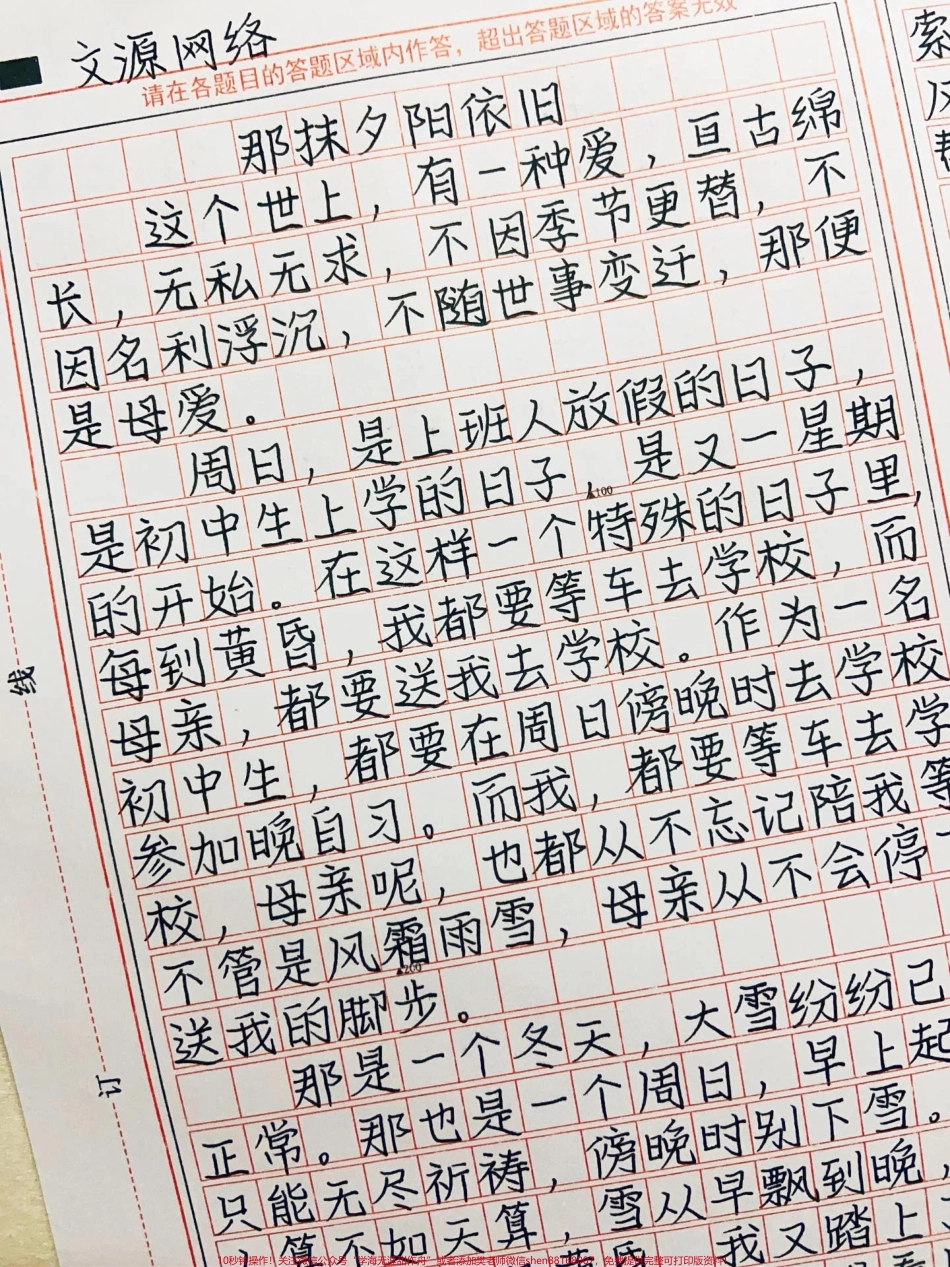 文源网络
请在各题目的答题区域内作答，超出答题区域的答案无效
那抹夕阳依旧
这个世上，有一种爱，亘古绵
长，无私无求，不因季节更替，不
因名利浮沉，不随世事变迁，那便
是母爱。
周日，是上班人放假的日子，
是初中生上学的日子，是又一星期
100
的开始。在这样一个特殊的日子里，
每到黄昏，我都要等车去学校，而
母亲，都要送我去学校。作为一名
初中生，都要在周日傍晚时去学校
参加晚自习。而我，都要等车去学
校，母亲呢，也都从不忘记陪我等
不管是风霜雨雪，母亲从不会停
200
送我的脚步。
那是一个冬天，大雪纷纷己
正常。那也是一个周日，早上起
只能无尽祈祷，傍晚时别下雪。
算不如天算，雪从早飘到晚，
我又踏上
线
订
索
风
10秒钟操作！关注微信公众号“学海无涯创作舟”或者添加樊老师微信
免费提供完整可打印版资料